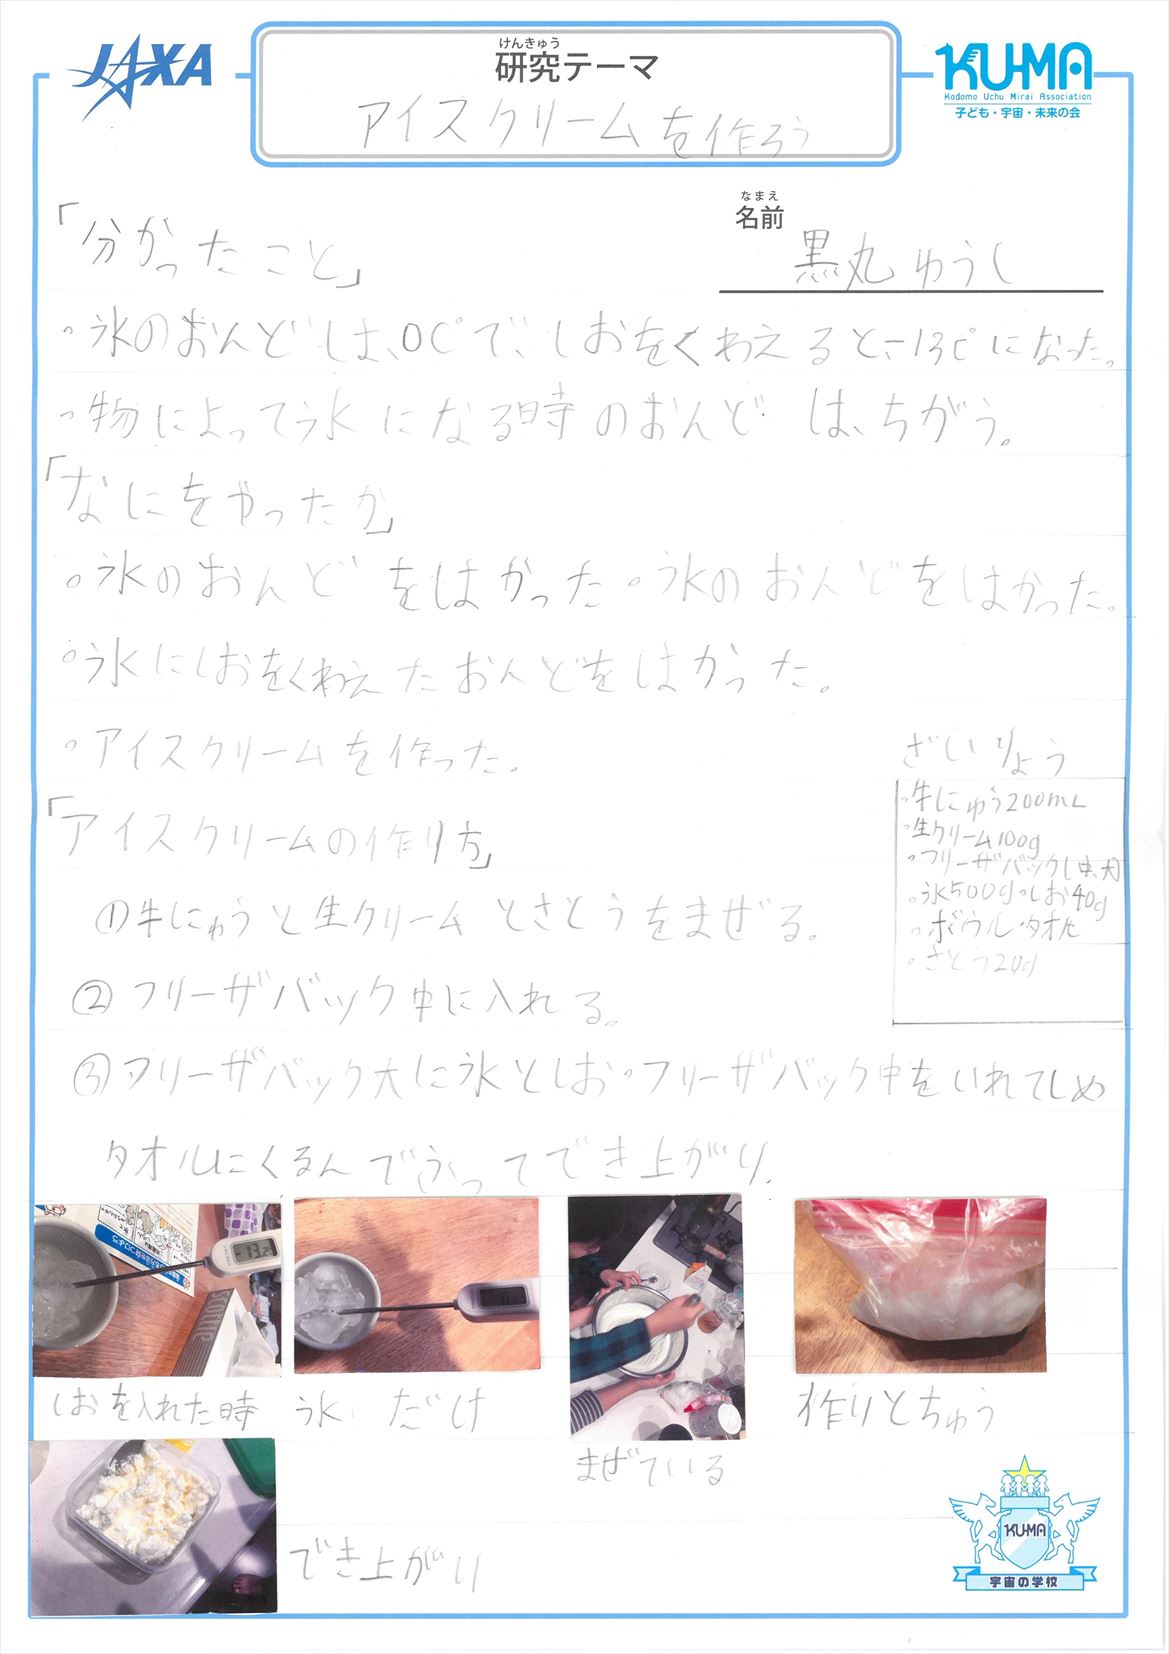 JAXA
けんきゅう
研究テーマ
アイスクリームを作ろう
KU-MA
Kodomo Uchu Mirai Association
子ども・宇宙・未来の会
なまえ
名前
黒丸ゆうし
「分かったこと」
・氷のおんどしは、0C°で、しおをくわえると、-13C°になった。
・物によって氷になる時のおんどは、ちがう。
「なにをやったか」
・氷のおんどをはかった・氷のおんどをはかった。
・氷にしおをくわえたおんどをはかった。
・アイスクリームを作った。
ざいりょう
・牛にゅう200mL
・生クリーム100g
・フリーザバック(中、大)
・氷500g・しお40g
・ボウル・タオル
・さとう20g
「アイスクリームの作り方」
①牛にゅうと生クリームとさとうをまぜる。
②フリーザバック中に入れる。
③フリーザバック大に氷としお・フリーザバック中をいれてしめ
タオルにくるんでふってでき上がり。
-13.2
しおを入れた時
氷だけ
まぜている
作りとちゅう
でき上がり
KU-MA
宇宙の学校